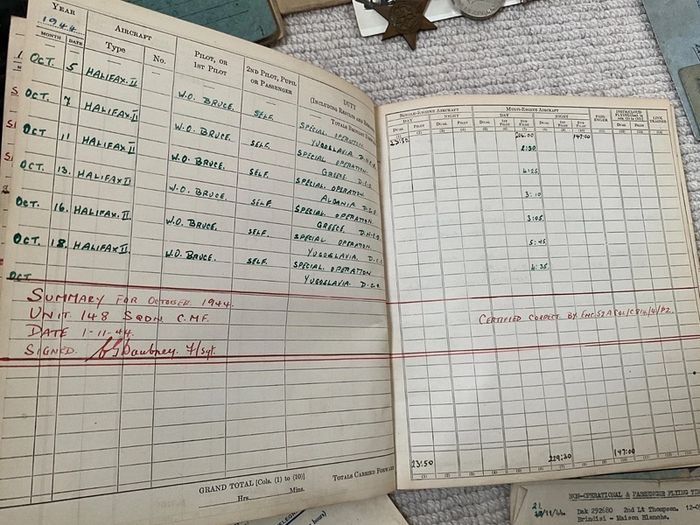 YEAR
1944
AIRCRAFT
PILOT, OR 1ST PILOT
2ND PILOT, PUPIL OR PASSENGER
DUTY
MONTH DATE Type No.
TOTALS BROUGHT
OCT. 5 HALIFAX.II W.O. BRUCE. SELF. SPECIAL OPERATION.
YUGOSLAVIA
OCT. 7 HALIFAX.II W.O. BRUCE. SELF. SPECIAL OPERATION.
GREECE
OCT. 11 HALIFAX.II W.O. BRUCE. SELF. SPECIAL OPERATION.
ALBANIA
OCT. 13. HALIFAX.II W.O. BRUCE. SELF. SPECIAL OPERATION.
GREECE
OCT. 16. HALIFAX.II W.O. BRUCE. SELF. SPECIAL OPERATION.
YUGOSLAVIA
OCT. 18. HALIFAX.II W.O. BRUCE. SELF. SPECIAL OPERATION.
YUGOSLAVIA
OCT
SUMMARY FOR OCTOBER 1944.
UNIT 148 SQDN C.M.F.
DATE 1-11-44.
SIGNED. F/Sgt.
GRAND TOTAL [Cols. (1) to (10)]
Hrs. Mins.
TOTALS CARRIED FORWARD
SINGLE-ENGINE AIRCRAFT MULTI-ENGINE AIRCRAFT
DAY NIGHT DAY NIGHT
DUAL PILOT DUAL PILOT DUAL 1ST PILOT 2ND PILOT DUAL 1ST PILOT 2ND PILOT PASSENGER LINK TRAINER
23:50 147:00
4:25
3:10
3:05
5:45
4:35
CERTIFIED CORRECT BY
23:50 229:20 147:00
NON-OPERATIONAL & PASSENGER FLYING
Dak 292680 2nd Lt Thompson.
Brindisi - Maison Blanche.